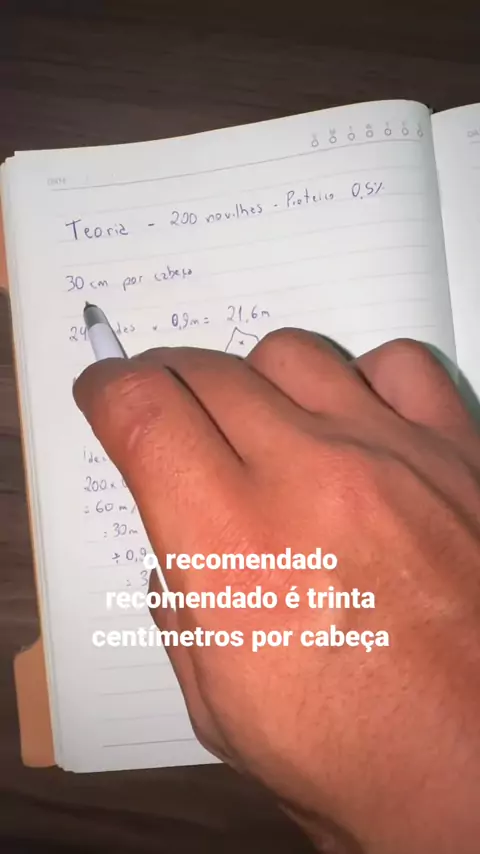 Teoria - 200 novilhas - Proteico 0,5%
30 cm por cabeça
0,9m = 21,6m
200x
= 60m/
= 30m
÷ 0,9
= 3
o recomendado
recomendado é trinta
centímetros por cabeça